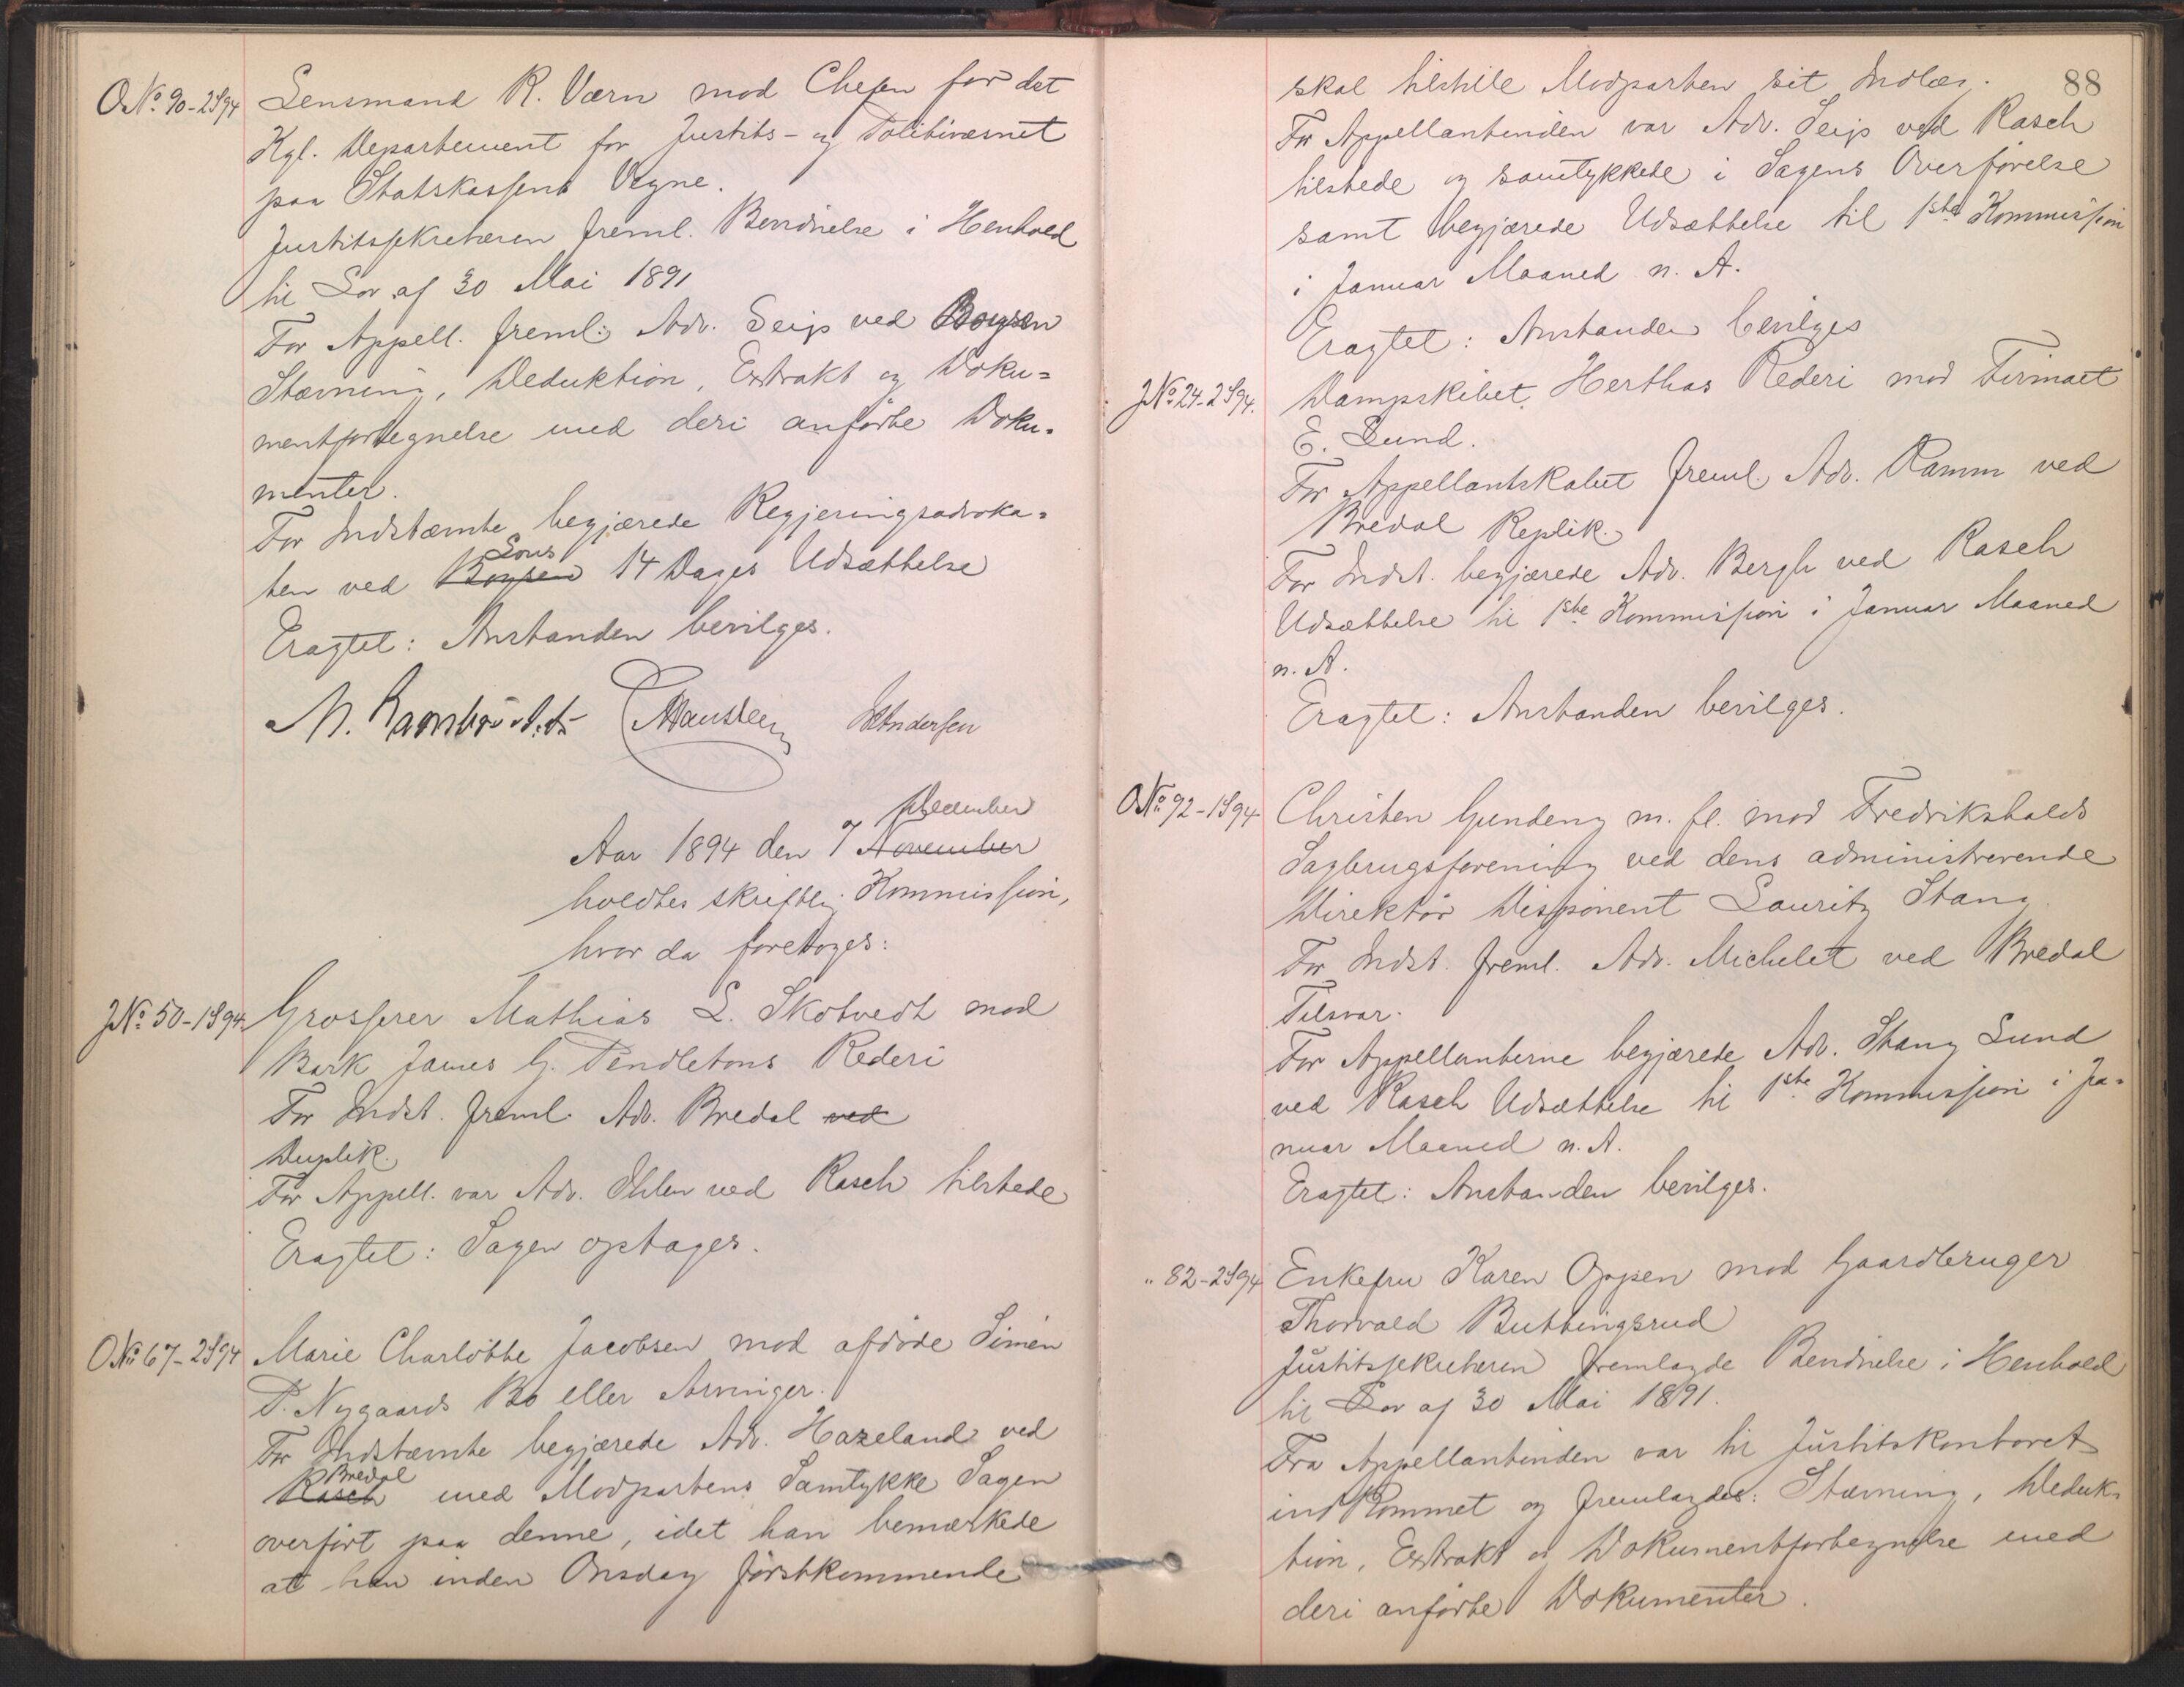 O.№ 90-2S94 Lensmand R. Værn mod Chefen for det
Kgl. Departement for Justits- og Politivæsnet
paa Statskassens Vegne.
Justitssekretæren freml. Berammelse i Henhold
til Lov af 30 Mai 1891
For Appell. freml: Adv. Seip ved Boysen
Stævning, Deduktion, Extrakt og Doku=
mentfortegnelse med deri anførte Doku=
menter.
For Indstævnte begjærede Regjeringsadvoka=
Lous
ten ved Boysen 14 Dages Udsættelse
Eragtet: Anstanden bevilges.
Andersen
December
Aar 1894 den 7 November
holdtes skriftlig Kommission,
hvor da foretoges:
J№ 50-1S94. Grosserer Mathias L. Skotvedt mod
Bark James G. Pendletons Rederi
For Indst. freml. Adv. Bredal ved
Duplik.
For Appell. var Adv. Ihlen ved Rasch tilstede
Eragtet: Sagen optages.
O№ 67-2S94 Marie Charlotte Jacobsen mod afdøde Simen
P. Nygaards Bo eller Arvinger.
For Indstævnte begjærede Adv. Hazeland ved
Bredal
Rasch med Modpartens Samtykke Sagen
overført paa denne, idet han bemærkede
at han inden Onsdag førstkommende
88
skal tilstille Modparten sit Indlæg.
For Appellantinden var Adv. Seip ved Rasch
tilstede og samtykkede i Sagens Overførelse
samt begjærede Udsættelse til 1ste Kommission
i Januar Maaned n. A.
Eragtet: Anstanden bevilges
J№ 24-2S94. Dampskibet Herthas Rederi mod Firmaet
E. Lund.
For Appellantskabet freml. Adv. Ramm ved
Bredal Replik.
For Indst. begjærede Adv. Bergh ved Rasch
Udsættelse til 1ste Kommission i Januar Maaned
n. A.
Eragtet: Anstanden bevilges.
O№ 92-1S94 Christen Gundeng m. fl. mod Fredrikshalds
Sagbrugsforening ved dens administrerende
Direktør Disponent Lauritz Stang.
For Indst. freml. Adv. Michelet ved Bredal
Tilsvar.
For Appellanterne begjærede Adv. Stang Lund
ved Rasch Udsættelse til 1ste Kommission i Ja=
nuar Maaned n. A.
Eragtet: Anstanden bevilges.
" 82-2S94 Enkefru Karen Oppen mod Gaardbruger
Thorvald Buttingsrud
Justitssekretæren fremlagde Berammelse i Henhold
til Lov af 30 Mai 1891.
Fra Appellantinden var til Justitskontoret
indkommet og fremlagdes: Stævning, Deduk=
tion, Extrakt og Dokumentfortegnelse med
deri anførte Dokumenter.